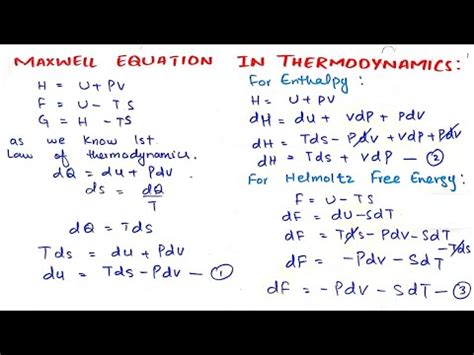 MAXWELL EQUATION IN THERMODYNAMICS:
H = U + PV
F = U - TS
G = H - TS
as we know Ist
Law of thermodynamics.
dQ = du + Pdv
ds = dQ/T
dQ = Tds
Tds = du + Pdv
du = Tds - Pdv — ①
For Enthalpy :
H = U + PV
dH = du + vdP + Pdv
dH = Tds - Pdv + vdP + Pdv
dH = Tds + vdP — ②
For Helmoltz Free Energy:
F = U - TS
dF = du - SdT - Tds
dF = Tds - Pdv - SdT
dF = - Pdv - SdT
dF = - Pdv - SdT — ③